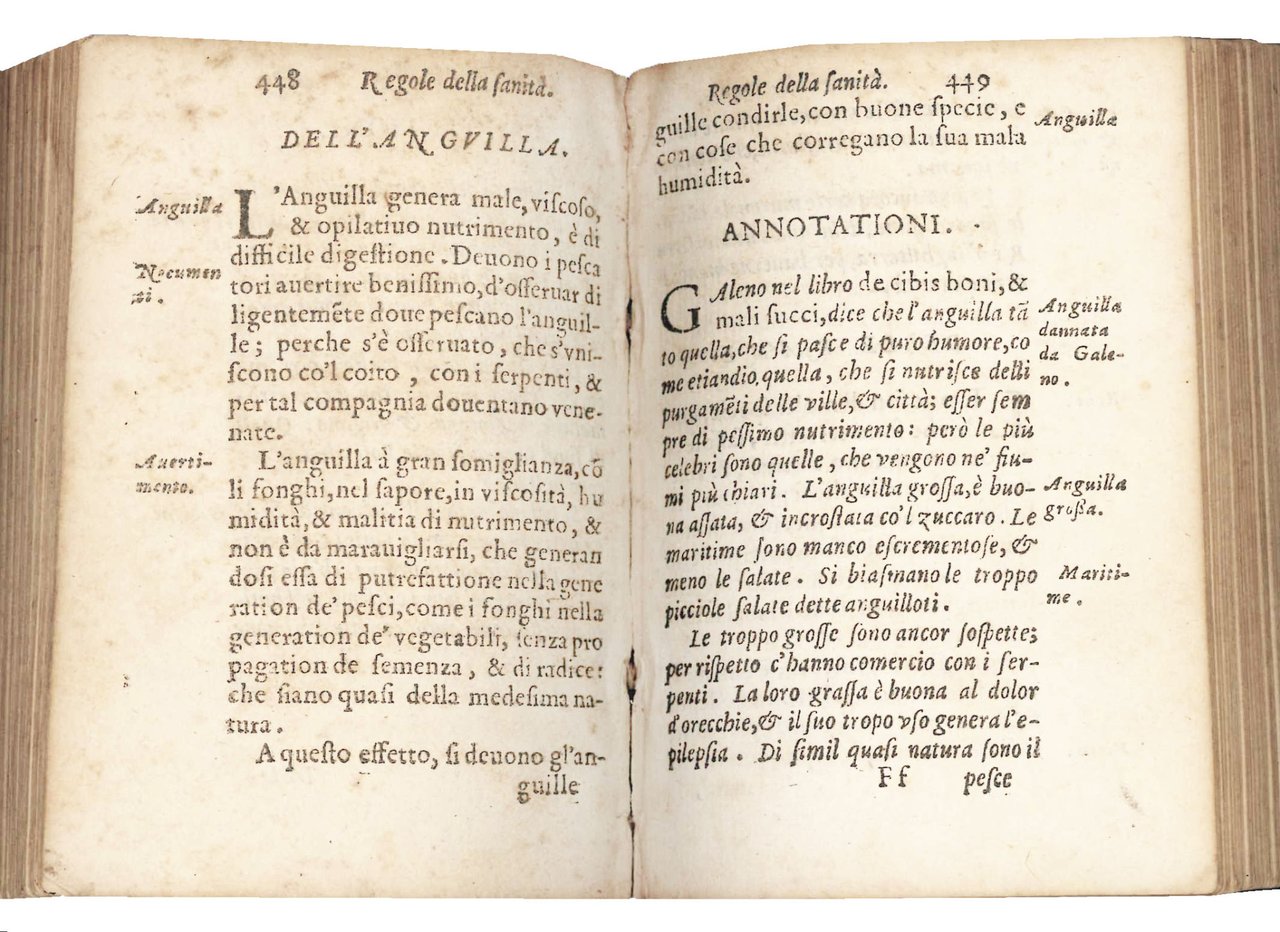 448 Regole della ſanità.
DELL'ANGVILLA.
Anguilla
L'Anguilla genera male, viſcoſo,
& opilatiuo nutrimento, è di
difficile digeſtione. Deuono i peſca
Nocumen
ti.
tori auertire beniſſimo, d'oſſeruar di
ligentemẽte doue peſcano l'anguil-
le; perche s'è oſſeruato, che s'vni-
ſcono co'l coito, con i ſerpenti, &
per tal compagnia douentano vene-
nate.
Auerti-
mento.
L'anguilla à gran ſomiglianza, cõ
li fonghi, nel ſapore, in viſcoſità, hu
midità, & malitia di nutrimento, &
non è da marauigliarſi, che generan
doſi eſſa di putrefattione nella gene
ration de' peſci, come i fonghi nella
generation de' vegetabili, ſenza pro
pagation de ſemenza, & di radice:
che ſiano quaſi della medeſima na-
tura.
A queſto effetto, ſi deuono gl'an-
guille
Regole della ſanità. 449
guille condirle, con buone ſpecie, e
Anguilla
con coſe che corregano la ſua mala
humidità.
ANNOTATIONI.
GAleno nel libro de cibis boni, &
mali ſucci, dice che l'anguilla tã
Anguilla
dannata
da Gale-
no.
to quella, che ſi paſce di puro humore, co
me etiandio, quella, che ſi nutriſce delli
purgamẽti delle ville, & città; eſſer ſem
pre di peſſimo nutrimento: però le più
celebri ſono quelle, che vengono ne' fiu-
mi più chiari. L'anguilla groſſa, è buo-
Anguilla
groſſa.
na aſſata, & incroſtata co'l zuccaro. Le
maritime ſono manco eſcrementoſe, &
meno le ſalate. Si biaſmano le troppo
Mariti-
me.
picciole ſalate dette anguilloti.
Le troppo groſſe ſono ancor ſoſpette;
per riſpetto c'hanno comercio con i ſer-
penti. La loro graſſa è buona al dolor
d'orecchie, & il ſuo tropo vſo genera l'e-
pilepſia. Di ſimil quaſi natura ſono il
Ff peſce